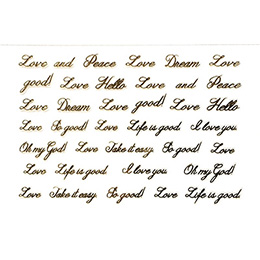 Love and Peace Love Dream Love
good! Love Hello Love and Peace
Love Dream Love good! Love Hello
Love So good! Love Life is good I love you
Oh my God! Love Take it easy. So good! Love
Love Life is good I love you Oh my God!
Love Take it easy. So good! Love Life is good